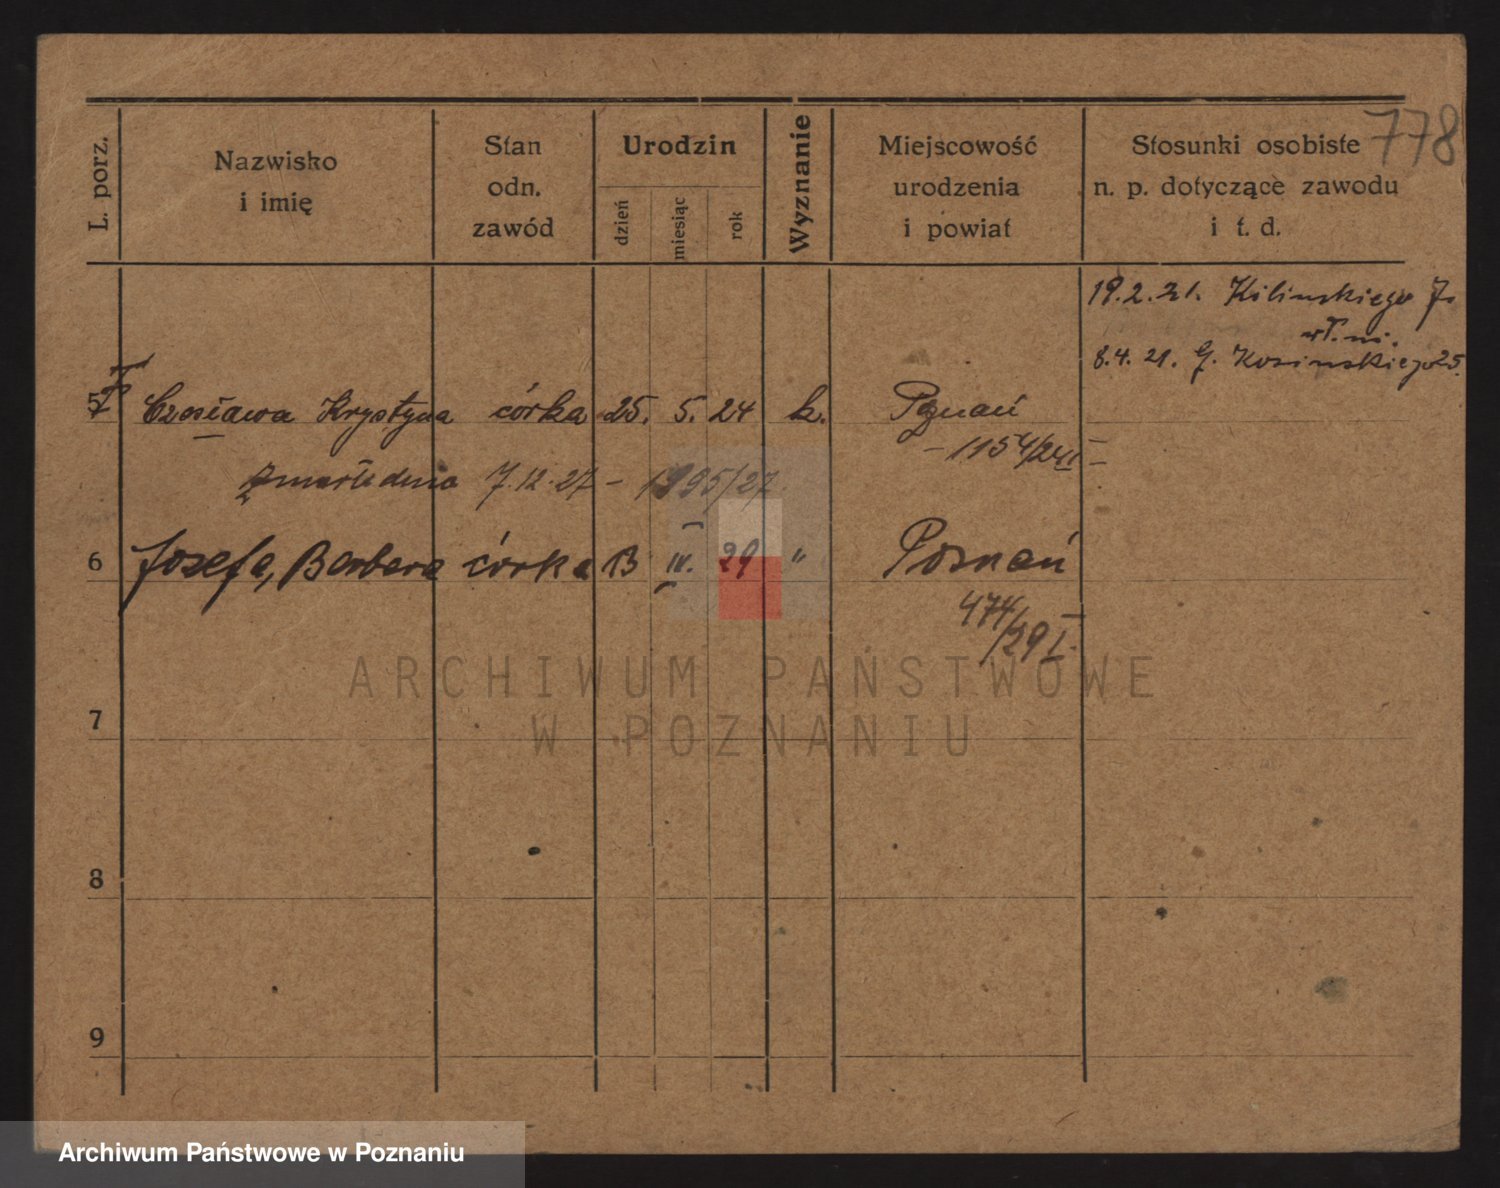 778
L. porz.
Nazwisko i imię
Stan odn. zawód
Urodzin
dzień
miesiąc
rok
Wyznanie
Miejscowość urodzenia i powiat
Stosunki osobiste n. p. dotyczące zawodu i t. d.
19.2.21. Kilinskiego 7.
8.4.21. G. Kosinskiego 25.
5 Czesława Krystyna córka 25. 5. 24 k. Poznań
1154/24
zmarła dnia 7.12.27 - 1995/27
6 Jozefa, Barbara córka 13 IV. 29 " Poznań
474/29 I.
7
8
9
ARCHIWUM PAŃSTWOWE
W POZNANIU
Archiwum Państwowe w Poznaniu